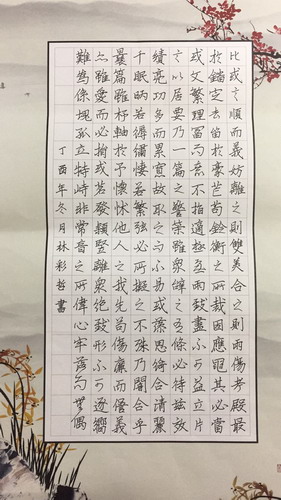 比或言順而義妨離之則雙美合之則兩傷考殿最
於錙定去留於豪芒苟銓衡之所裁固應繩其必當
或文繁理富而意不指適極無兩致盡不可益立片
言以居要乃一篇之警策雖眾辭之有條必待茲效
績亮功多而累寡故取足而不易或藻思綺合清麗
千眠炳若縟繡悽若繁絃必所擬之不殊乃闇合乎
曩篇雖杼軸於予懷怵他人之我先苟傷廉而愆義
亦雖愛而必捐或苕發穎豎離眾絕致形不可逐響
難為係塊孤立特峙非常音之所緯心牢落而無偶
丁酉年冬月林彩哲書